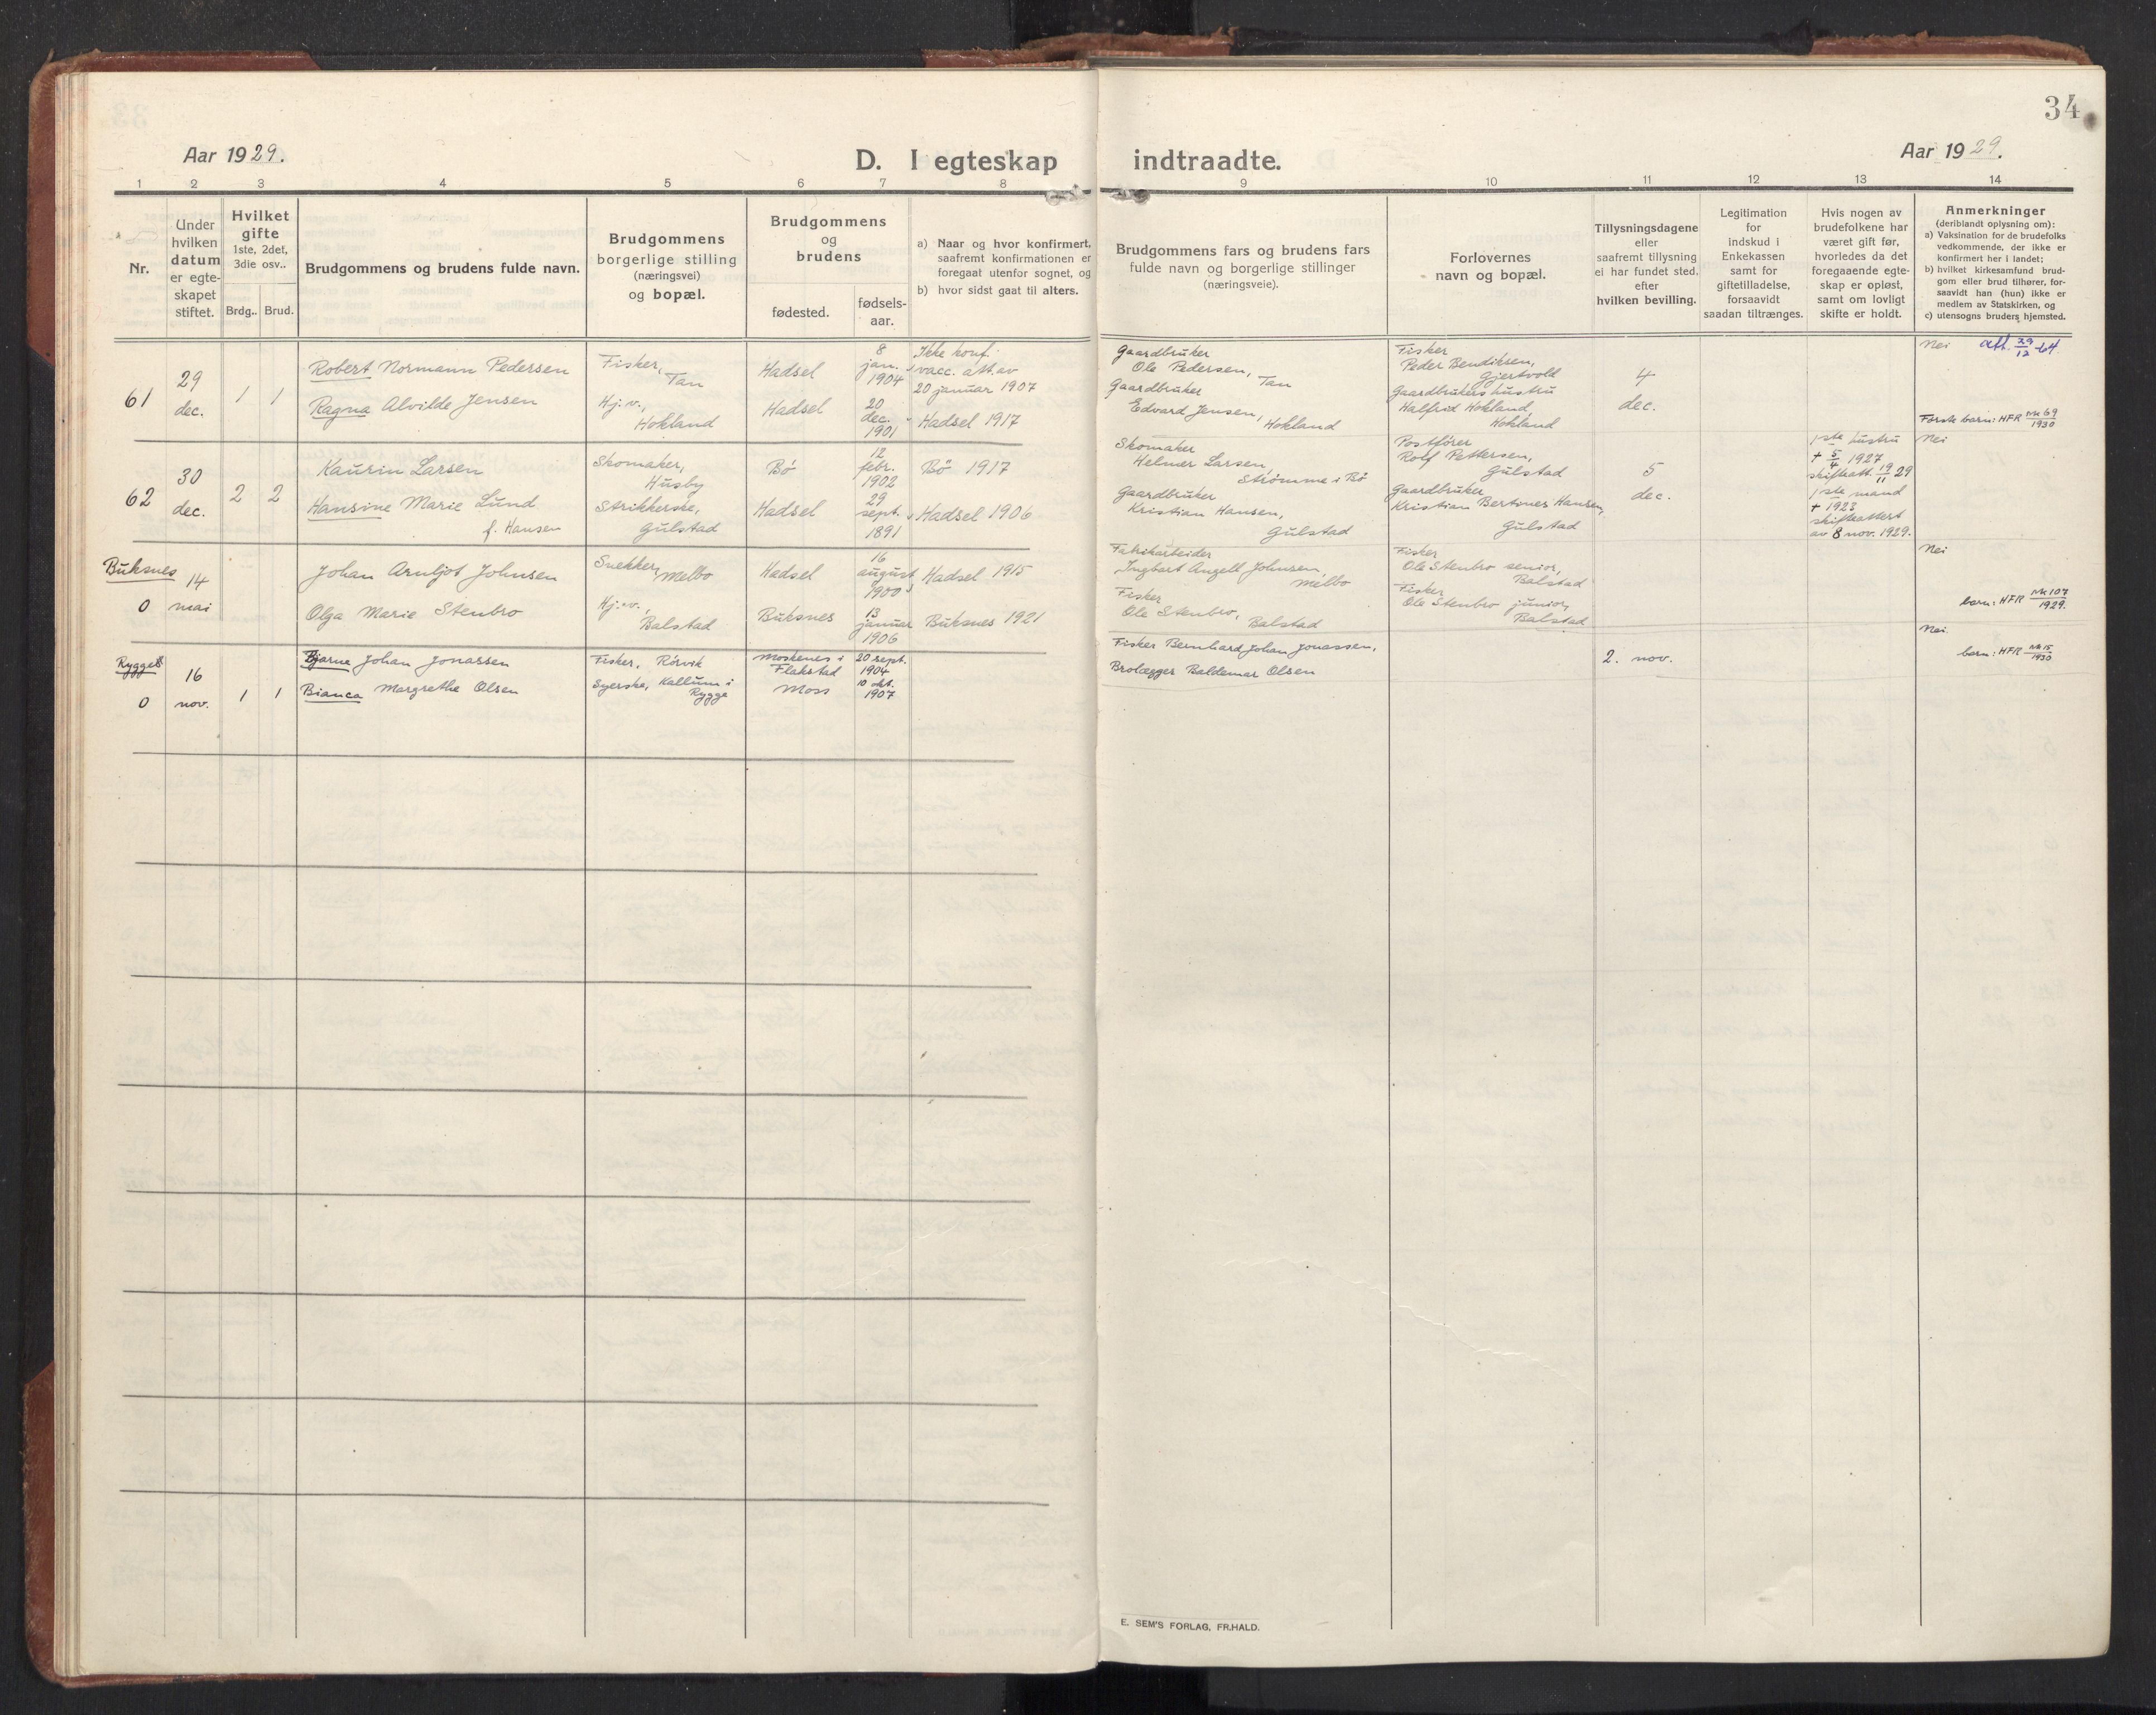 34
Aar 1929.
D. I egteskap indtraadte.
Aar 1929.
1 2 3 4 5 6 7 8 9 10 11 12 13 14
Nr.
Under
hvilken
datum
er egte-
skapet
stiftet.
Hvilket
gifte
1ste, 2det,
3die osv..
Brdg.. Brud.
Brudgommens og brudens fulde navn.
Brudgommens
borgerlige stilling
(næringsvei)
og bopæl.
Brudgommens
og
brudens
fødested.
fødsels-
aar.
a) Naar og hvor konfirmert,
saafremt konfirmationen er
foregaat utenfor sognet, og
b) hvor sidst gaat til alters.
Brudgommens fars og brudens fars
fulde navn og borgerlige stillinger
(næringsveie).
Forlovernes
navn og bopæl.
Tillysningsdagene
eller
saafremt tillysning
ei har fundet sted,
efter
hvilken bevilling.
Legitimation
for
indskud i
Enkekassen
samt for
giftetilladelse,
forsaavidt
saadan tiltrænges.
Hvis nogen av
brudefolkene har
været gift før,
hvorledes da det
foregaaende egte-
skap er opløst,
samt om lovligt
skifte er holdt.
Anmerkninger
(deriblandt oplysning om):
a) Vaksination for de brudefolks
vedkommende, der ikke er
konfirmert her i landet;
b) hvilket kirkesamfund brud-
gom eller brud tilhører, for-
saavidt han (hun) ikke er
medlem av Statskirken, og
c) utensogns bruders hjemsted.
61
29
dec.
1 1
Robert Normann Pedersen
Ragna Alvilde Jensen
Fisker,
Tan
Hj.v.,
Hokland
Hadsel
Hadsel
8
jan.
1904
20
dec.
1901
Ikke konf.
vacc. att. av
20 januar 1907
Hadsel 1917
Gaardbruker
Ole Pedersen, Tan
Gaardbruker
Edvard Jensen,
Hokland
Fisker
Peder Bendiksen,
Gjertvold
Gaardbrukers hustru
Halfrid Hokland,
Hokland
4
dec.
Nei att. 29/12 -64.
Første barn: HFR Nr 69/1930
62
30
dec.
2 2
Kaurin Larsen
Hansine Marie Lund
f. Hansen
Skomaker,
Husby
Strikkerske,
Gulstad
Bø
Hadsel
12
febr.
1902
29
sept.
1891
Bø 1917
Hadsel 1906
Skomaker
Helmer Larsen,
Strømme i Bø
Gaardbruker
Kristian Hansen,
Gulstad
Postfører
Rolf Pettersen,
Gulstad
Gaardbruker
Kristian Bertsnes Hansen,
Gulstad
5
dec.
1ste hustru
+ 5/4 1927
skifteatt. 19/11 29
1ste mand
+ 1923
skifteattest
av 8 nov. 1929.
Nei
Buksnes
0
14
mai
Johan Arntjot Johnsen
Olga Marie Stenbro
Snekker,
Melbo
Hj.v.,
Balstad
Hadsel
Buksnes
16
august
1900
13
januar
1906
Hadsel 1915
Buksnes 1921
Fabrikarbeider
Ingbart Angell Johnsen,
Melbo
Fisker
Ole Stenbro,
Balstad
Fisker
Ole Stenbro senior,
Balstad
Fisker
Ole Stenbro junior,
Balstad
Nei
barn: HFR Nr 107/1929.
Rygge
0
16
nov.
1 1
Bjarne Johan Jonassen
Bianca Margrethe Olsen
Fisker, Rörvik
Syerske, Kallum i
Rygge
Moskenes i
Flakstad
Moss
20 sept.
1904
10 okt.
1907
Fisker Bernhard Johan Jonassen,
Brolægger Baldemar Olsen
2. nov.
Nei.
barn: HFR Nr 15/1930
E. SEM'S FORLAG, FR.HALD.